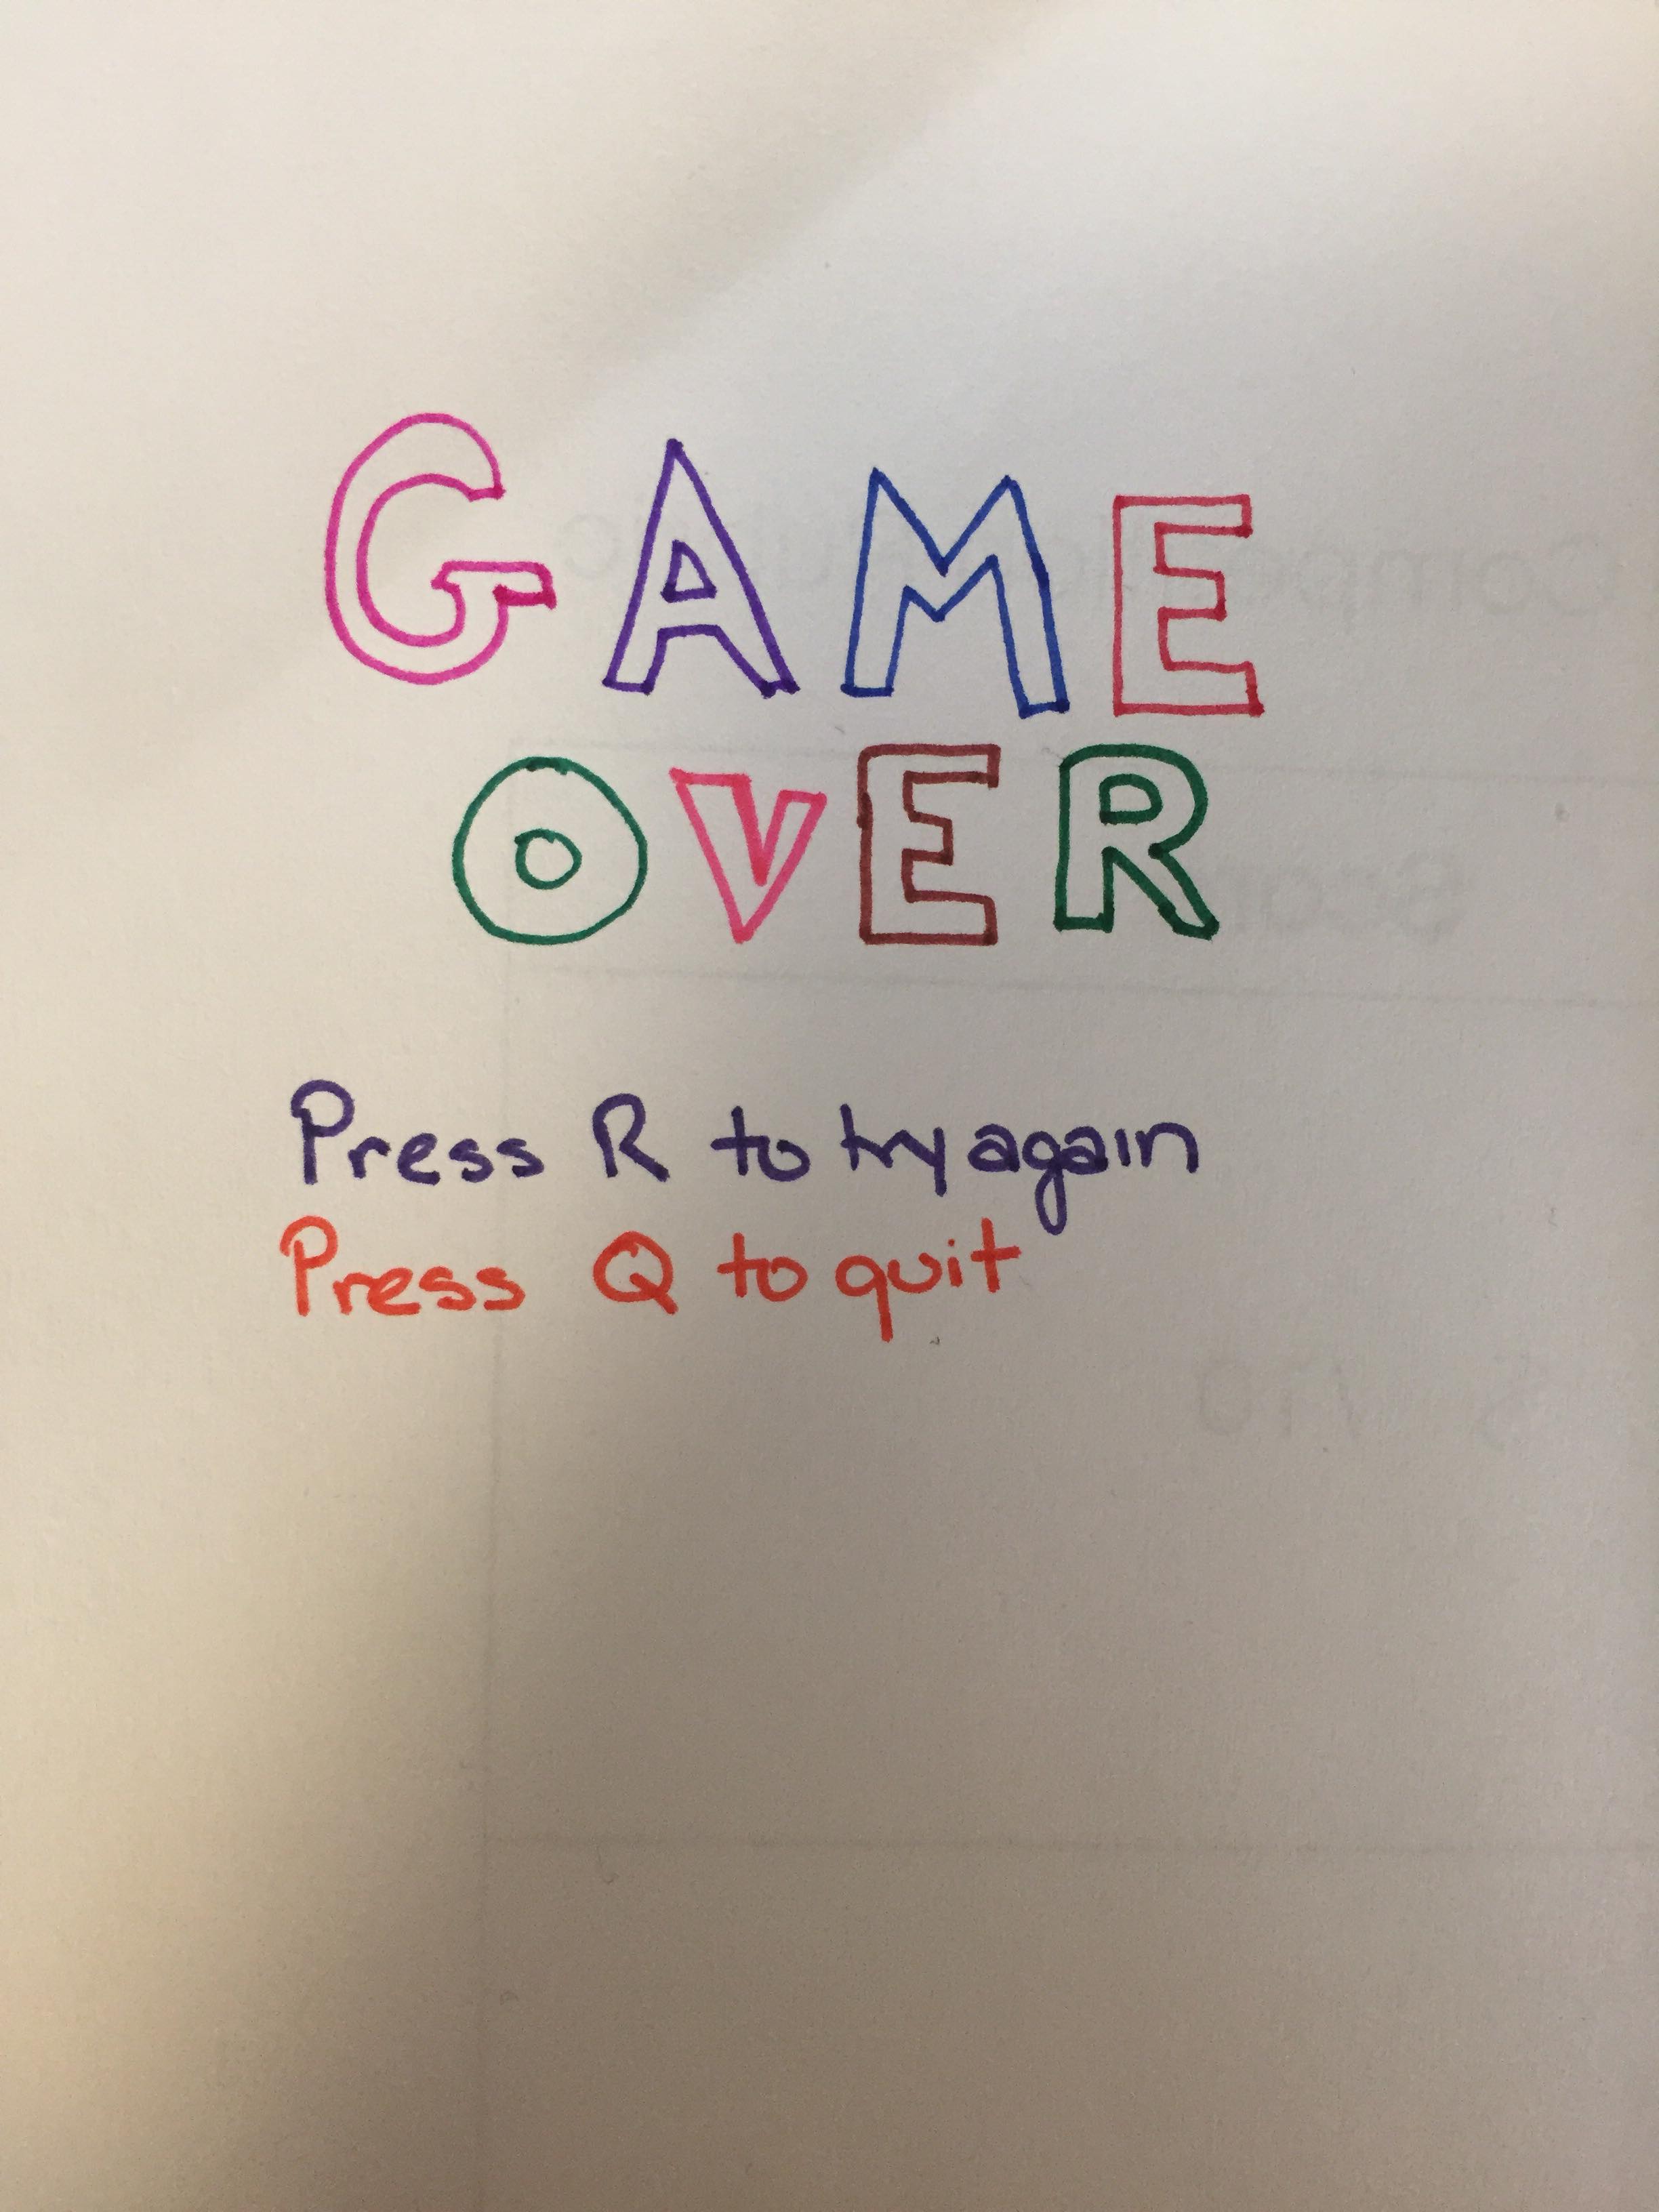 GAME
OVER
Press R to try again
Press Q to quit